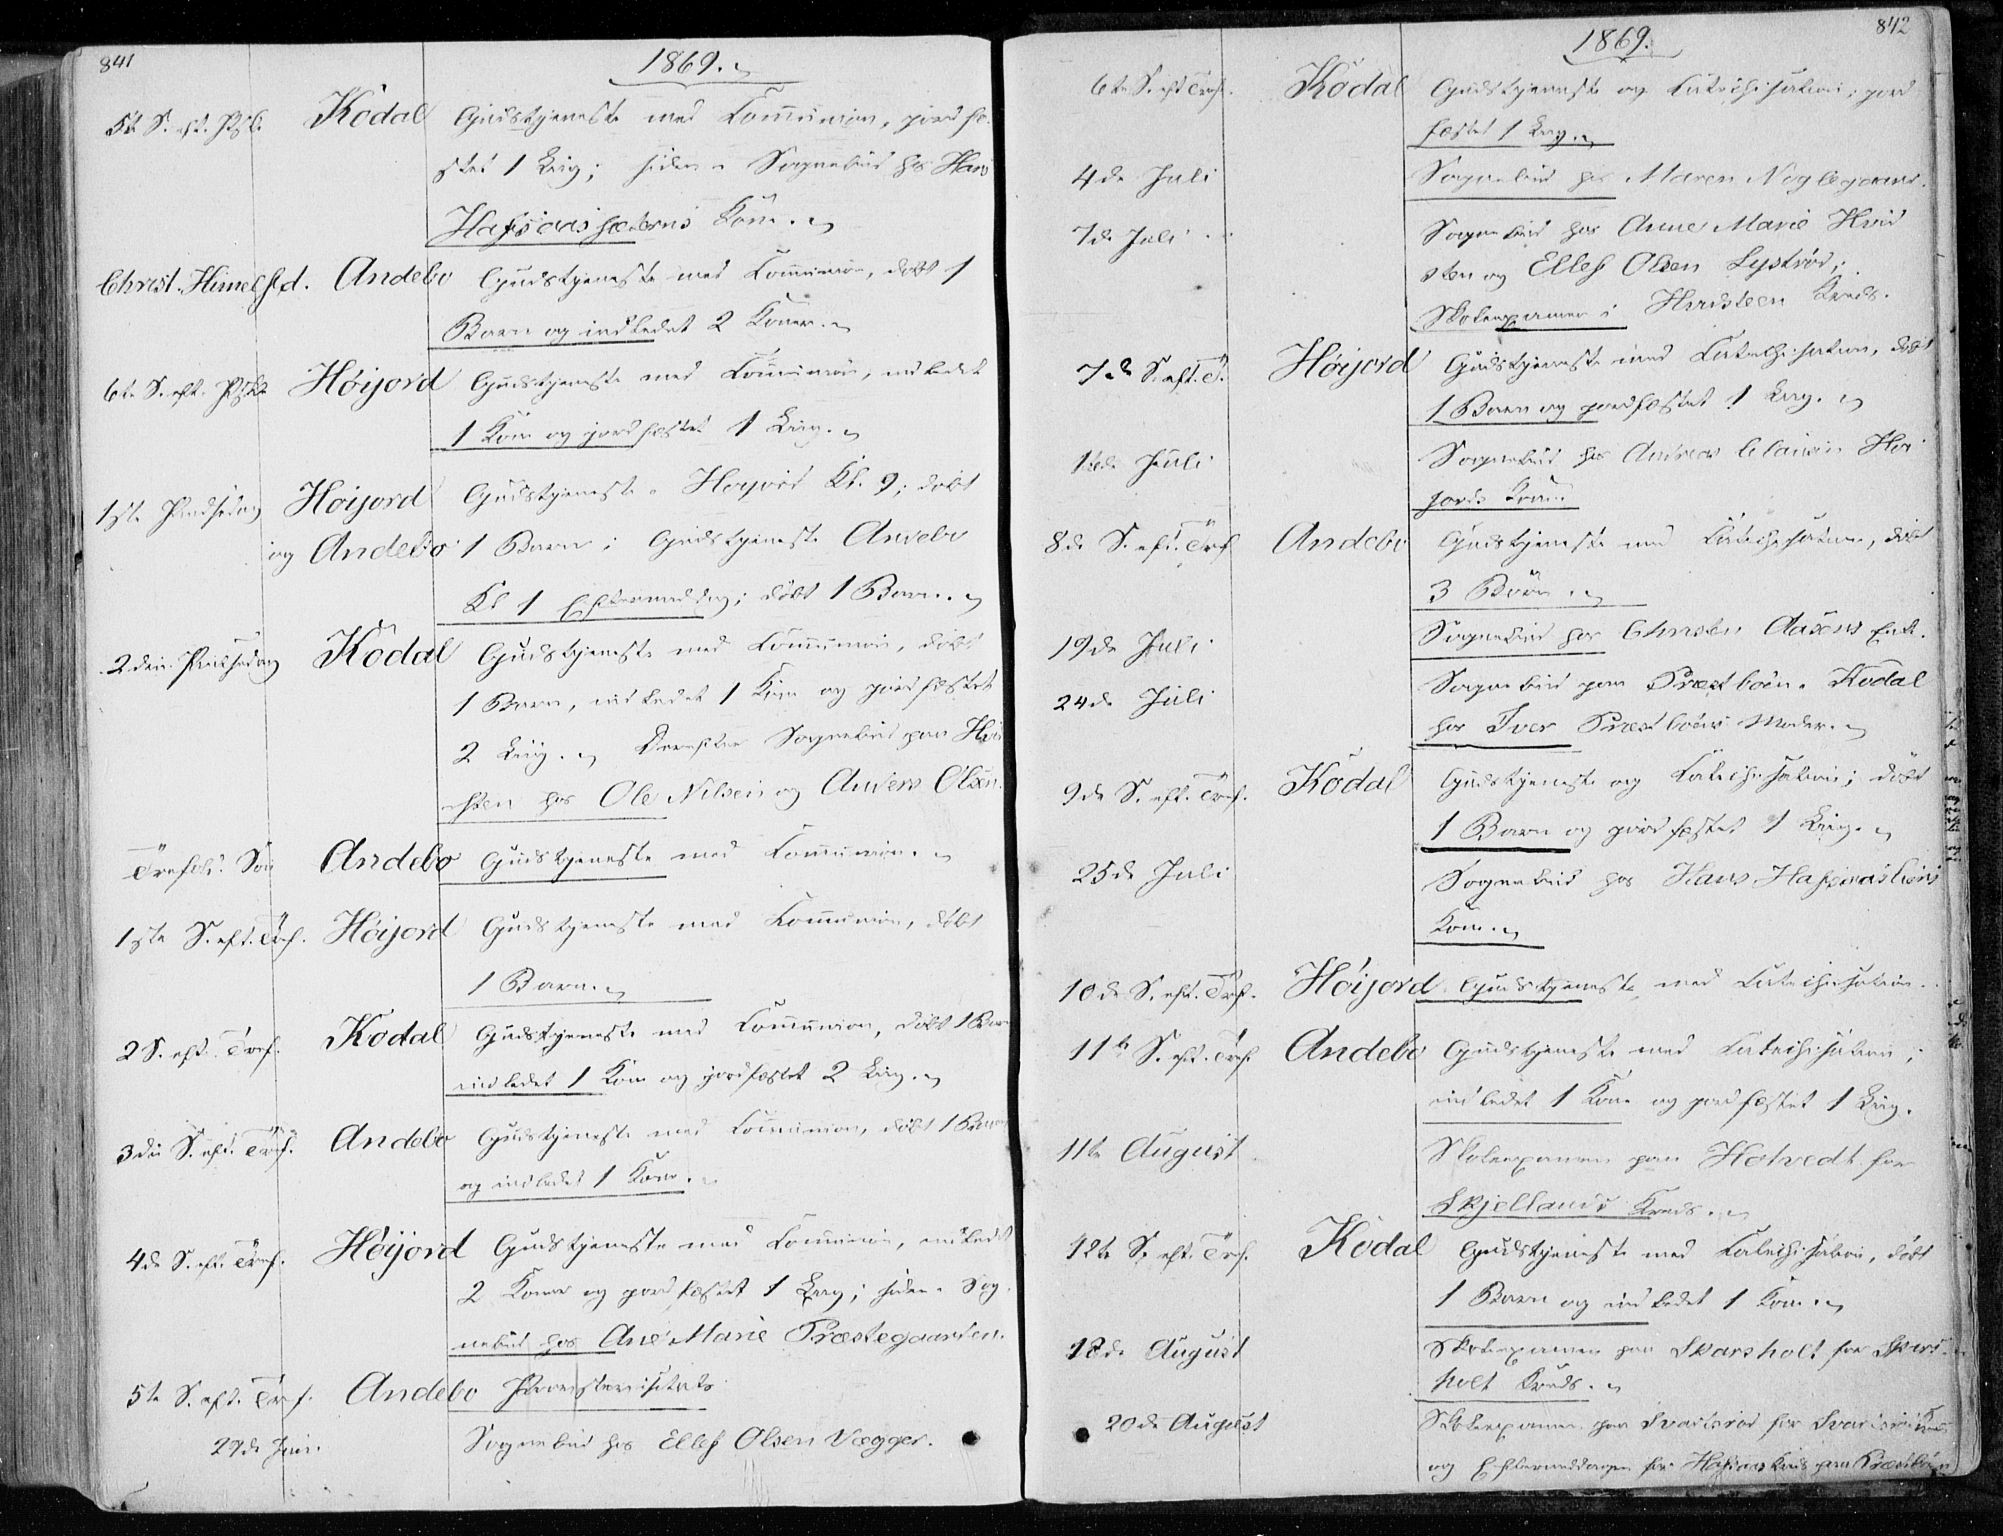 841
1869.
5te S. eft. Psk. Kodal Gudstjeneste med Communion, jordfæ-
stet 1 Liig; siden Sognebud hos Hans
Hafsaas Kone.
Christ. Himelf.d. Andebo Gudstjeneste med Communion, døbt 1
Barn og indledet 2 Koner.
6te S. eft. Pske Høijord Gudstjeneste med Communion, indledet
1 Kone og jordfæstet 1 Liig.
1ste Pindsedag Høijord Gudstjeneste i Høyord Kl. 9; døbt
og Andebo 1 Barn; Gudstjeneste Andebo
Kl 1 Eftermiddag; døbt 1 Barn.
2den Pindsedag Kodal Gudstjeneste med Communion, døbt
1 Barn, indledet 1 Kone og jordfæstet
2 Liig. Derefter Sognebud paa Hvid
steen hos Ole Nilsen og Anders Olsen.
Trefold. Søn Andebo Gudstjeneste med Communion.
1ste S. eft. Tref. Høijord Gudstjeneste med Communion, døbt
1 Barn.
2 S. eft. Tref. Kodal Gudstjeneste med Communion, døbt 1 Barn
indledet 1 Kone og jordfæstet 2 Liig.
3die S. eft. Tref. Andebo Gudstjeneste med Communion, døbt 1 Barn
og indledet 1 Kone.
4de S. eft. Tref. Høijord Gudstjeneste med Communion, indledet
2 Koner og jordfæstet 1 Liig; siden Sog-
nebud hos Ane Marie Præstegaarden.
5te S. eft. Tref. Andebo Provstevisitats
29de Juni. Sognebud hos Ellef Olsen Vægger.
842
1869.
6te S. eft Tref. Kodal Gudstjeneste og Catechisation; jord
fæstet 1 Liig.
4de Juli Sognebud hos Maren Nøglegaard.
7de Juli Sognebud hos Anne Marie Hvid
sten og Ellef Olsen Lystrød;
Skoleexamen i Hvidsteen Kreds.
7de S. eft. T. Høijord Gudstjeneste med Catechisation, døbt
1 Barn og jordfæstet 1 Liig.
Juli Sognebud hos Andreas Clausen Høi
jords Kone.
8de S. eft. Tref Andebo Gudstjeneste med Catechisation, døbt
3 Børn.
19de Juli Sognebud hos Christen Aasens Enke.
24de Juli Sognebud paa Præstbøen i Kodal
hos Iver Præstbøens Moder.
9de S. eft. Tref. Kodal Gudstjeneste og Catechisation; døbt
1 Barn og jordfæstet 1 Liig.
25de Juli Sognebud hos Hans Hafsaasliens
Kone.
10de S. eft. Tref. Høijord Gudstjeneste med Catechisation.
11te S. eft. Tref. Andebo Gudstjeneste med Catechisation;
indledet 1 Kone og jordfæstet 1 Liig.
11te August Skoleexamen paa Hotvedt for
Skjellands Kreds.
12te S. eft. Tref. Kodal Gudstjeneste med Catechisation, døbt
1 Barn og indledet 1 Kone.
18de August Skoleexamen paa Skarsholt for Skars-
holt Kreds.
20de August Skoleexamen paa Svartsrød for Svartsrød Kreds
og Eftermiddagen for Hafsaas Kreds paa Præstbøen